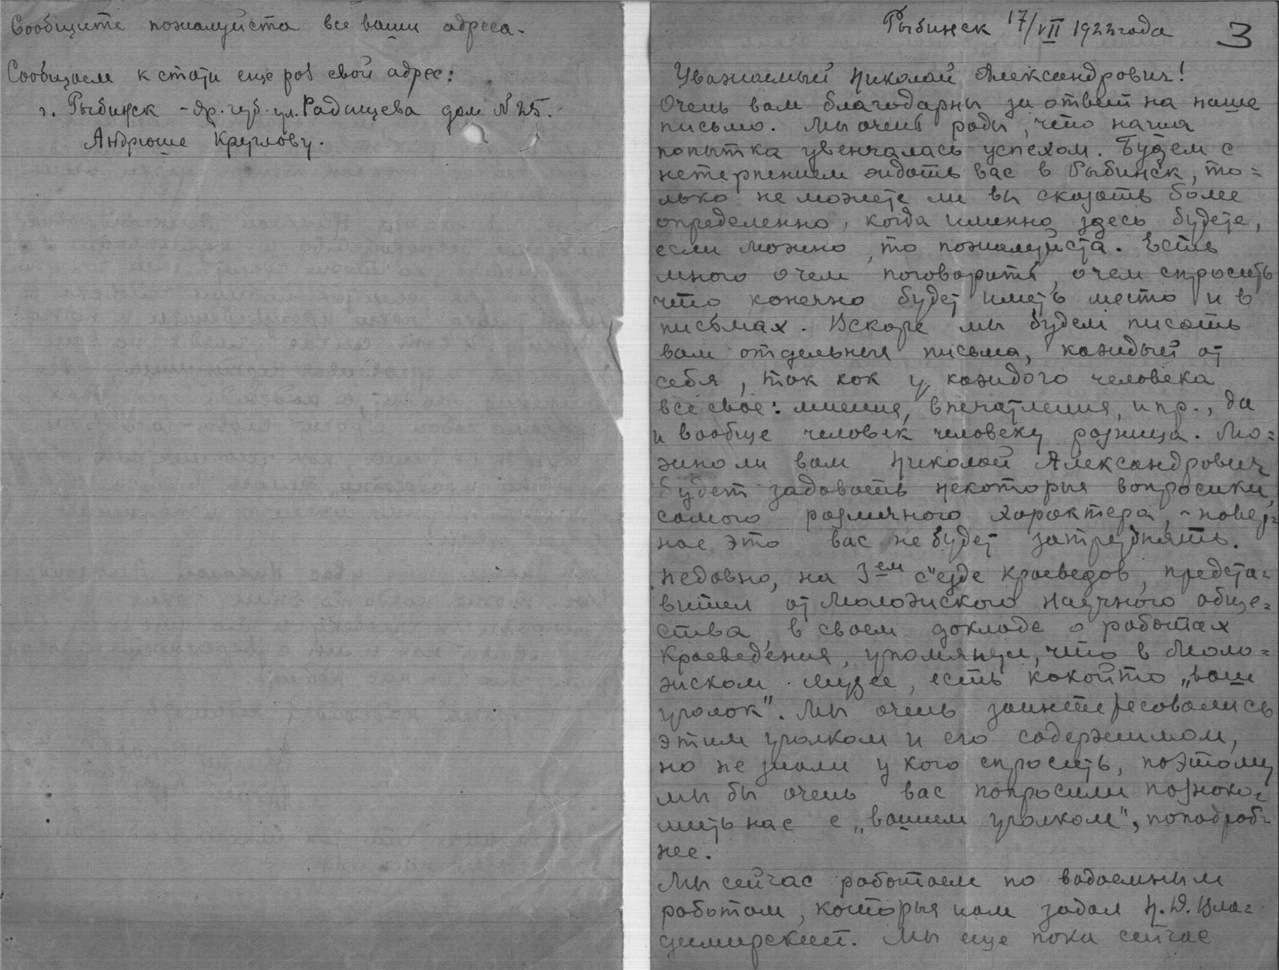 Сообщите пожалуйста все ваши адреса.
Сообщаем кстати еще раз свой адрес:
г. Рыбинск - Яр. губ. ул. Радищева дом № 25.
Андрюше Круглову.
Рыбинск 17/VII 1922 года
3
Уважаемый Николай Александрович!
Очень вам благодарны за ответ на наше
письмо. Мы очень рады, что наша
попытка увенчалась успехом. Будем с
нетерпением ждать вас в Рыбинск, то=
лько не можете ли вы сказать более
определенно, когда именно здесь будете,
если можно, то пожалуйста. Есть
много о чем поговорить, о чем спросить
что конечно будет иметь место и в
письмах. Вскоре мы будем писать
вам отдельныя письма, каждый от
себя, так как у каждого человека
все свое: мнения, впечатления, и пр., да
и вообще человек человеку разница. Мо=
жно ли вам Николай Александрович
будет задавать некоторыя вопросики,
самого различного характера, - навер=
ное это вас не будет затруднять.
Недавно, на 3ем с"езде краеведов, предста=
витель от Моложского Научного обще=
ства, в своем докладе о работах
краеведения, упомянул, что в Моло=
жском музее, есть какойто „ваш
уголок". Мы очень заинтересовались
этим уголком и его содержимом,
но не знали у кого спросить, поэтому
мы бы очень вас попросили познако=
мить нас с „вашем уголком", поподроб=
нее.
Мы сейчас работаем по водоемным
работам, которыя нам задал Н. Д. Вла=
димирский. Мы еще пока сейчас